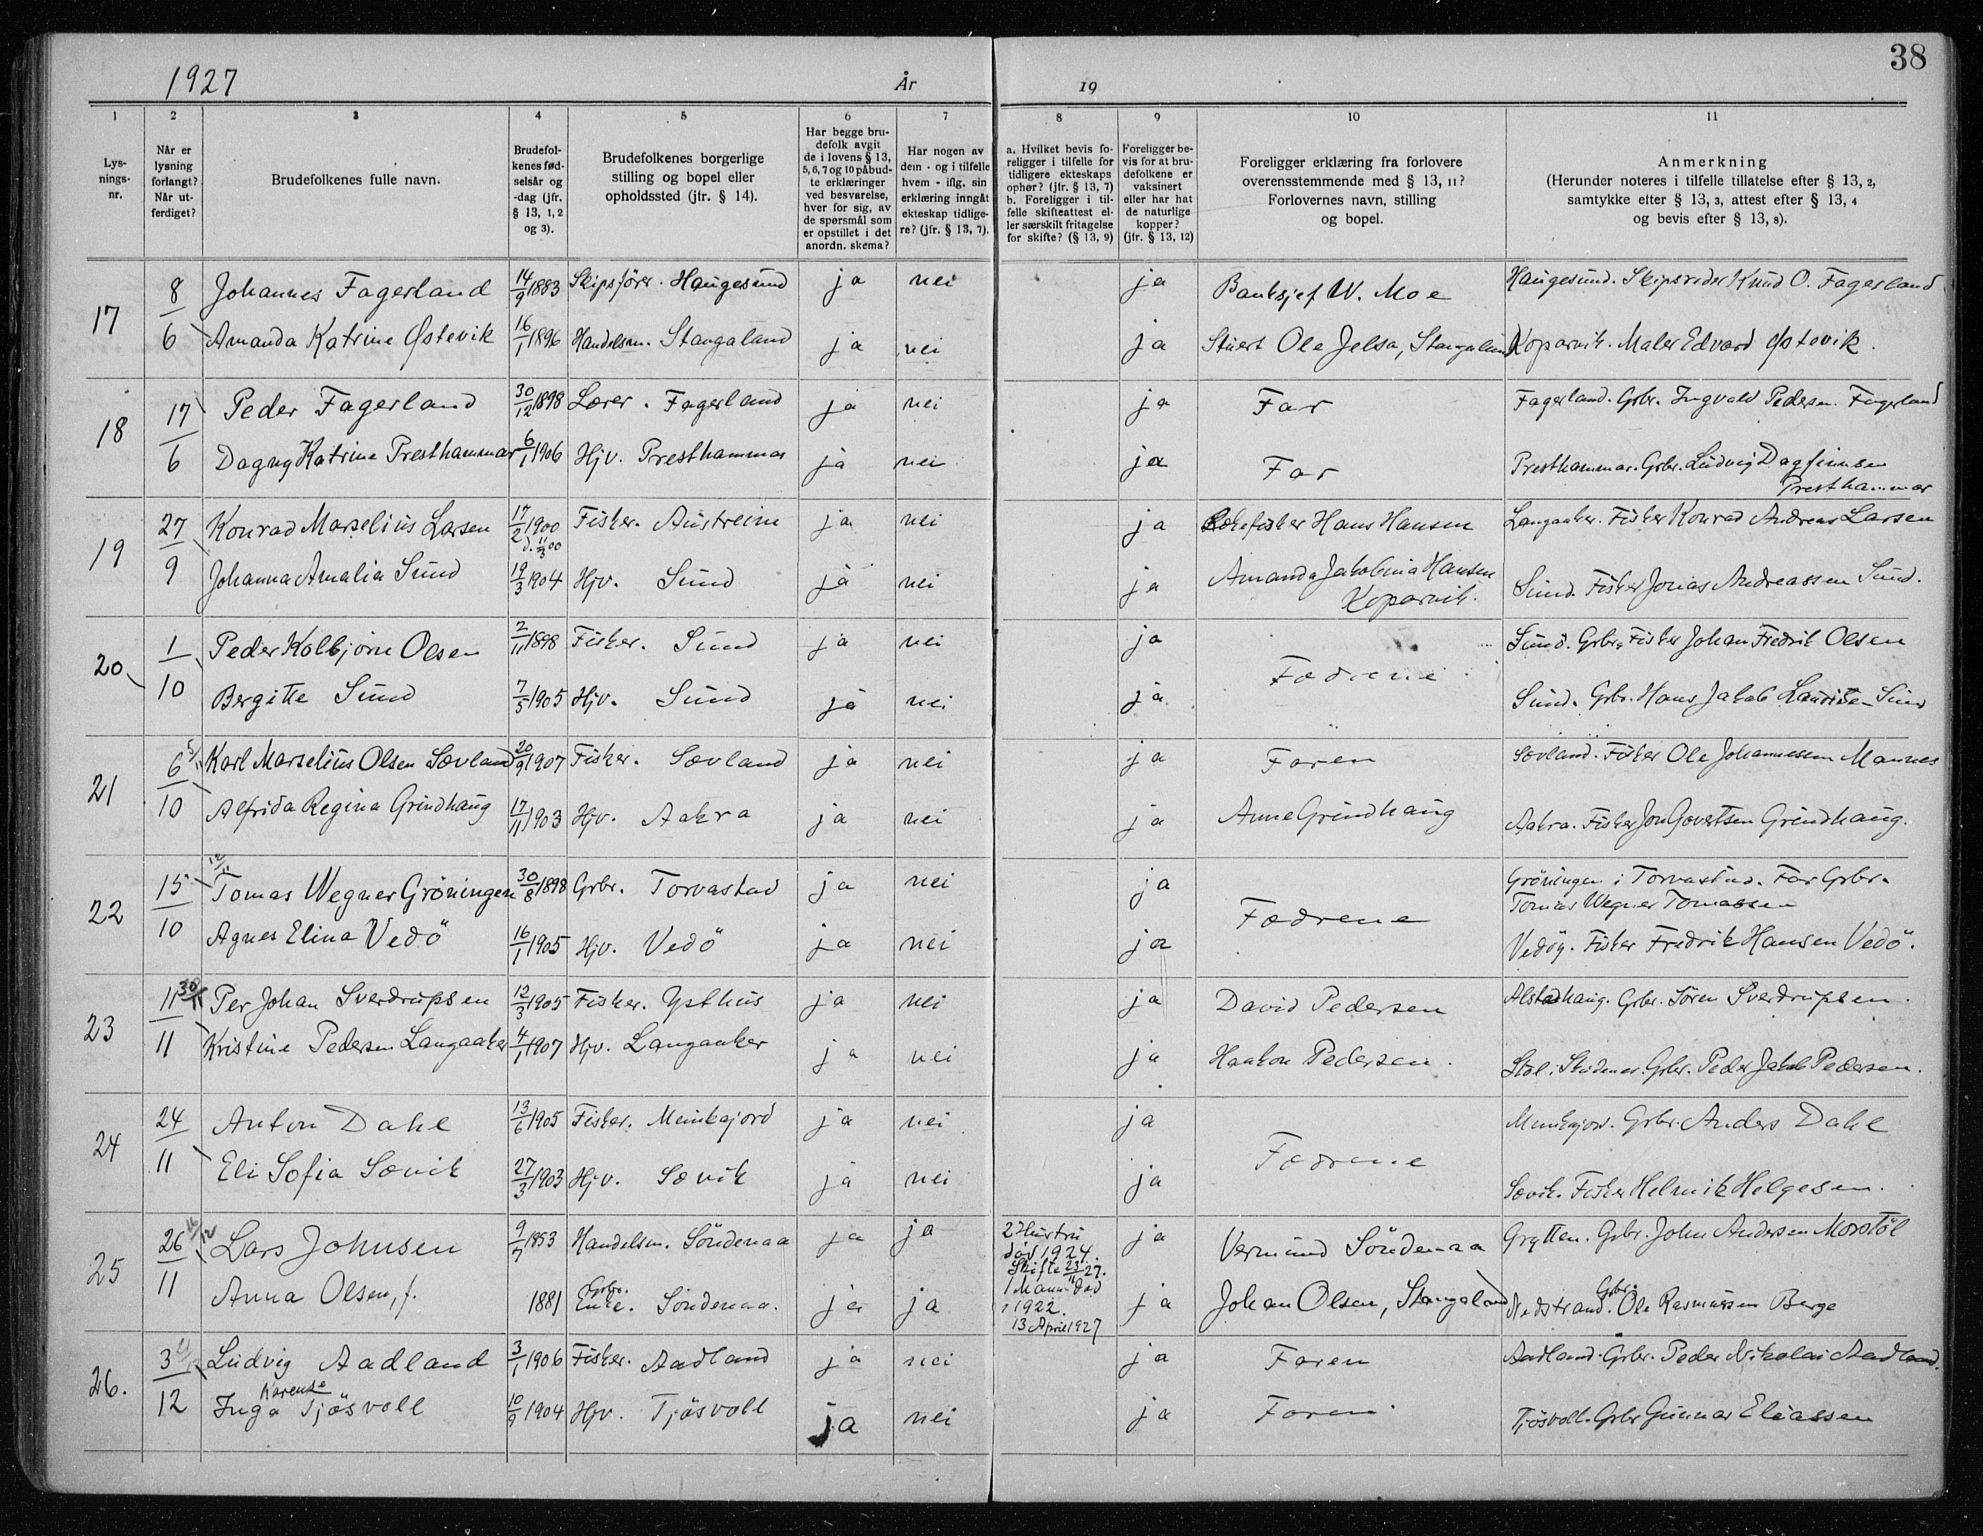 38
1927 År 19
1 2 3 4 5 6 7 8 9 10 11
Lysningsnr.
Når er lysning forlangt? Når utferdiget?
Brudefolkenes fulle navn.
Brudefolkenes fødselsår og -dag (jfr. § 13, 1, 2 og 3).
Brudefolkenes borgerlige stilling og bopel eller opholdssted (jfr. § 14).
Har begge brudefolk avgit de i lovens § 13, 5, 6, 7 og 10 påbudte erklæringer ved besvarelse, hver for sig, av de spørsmål som er opstillet i det anordn. skema?
Har nogen av dem - og i tilfelle hvem - iflg. sin erklæring inngåt ekteskap tidligere? (jfr. § 13, 7).
a. Hvilket bevis foreligger i tilfelle for tidligere ekteskaps ophør? (jfr. § 13, 7)
b. Foreligger i tilfelle skifteattest eller særskilt fritagelse for skifte? (§ 13, 9)
Foreligger bevis for at brudefolkene er vaksinert eller har hat de naturlige kopper? (jfr. § 13, 12)
Foreligger erklæring fra forlovere overensstemmende med § 13, 11? Forlovernes navn, stilling og bopel.
Anmerkning (Herunder noteres i tilfelle tillatelse efter § 13, 2, samtykke efter § 13, 3, attest efter § 13, 4 og bevis efter § 13, 8).
17 8/6 Johannes Fagerland 14/9 1883 Skipsförer. Haugesund ja nei ja Banksjef W. Moe Haugesund. Skipsreder Knud O. Fagerland
Amanda Katrine Østevik 16/1 1896 Handelsm. Stangaland ja nei ja Stuert Ole Jelsa, Stangaland Koparvik. Maler Edvard Østevik.
18 17/6 Peder Fagerland 30/12 1898 Lærer. Fagerland ja nei ja Far Fagerland. Grbr. Ingvald Pedersen Fagerland
Dagny Katrine Presthammar 6/1 1906 Hjv. Presthammar ja nei ja Far Presthammar. Grbr. Ludvig Dagfinnsen
Presthammar
19 27/9 Konrad Marselius Larsen 17/2 1900 Fisker. Austreim ja nei ja Hans Hansen Langaaker. Fisker Konrad Andreas Larsen
d. 11/3 00
Johanna Amalia Sund 19/3 1904 Hjv. Sund ja nei ja Amanda Jakobina Hansen Sund. Fisker Jonas Andreassen Sund.
Koparvik.
20 1/10 Peder Kolbjörn Olsen 2/11 1898 Fisker. Sund ja nei ja Fædrene Sund. Grbr. Fisker Johan Fredrik Olsen
Bergitte Sund 7/5 1905 Hjv. Sund ja nei ja Sund. Grbr. Hans Jakob Sund
21 6/10 Karl Marselius Olsen Sævland 20/9 1907 Fisker. Sævland ja nei ja Faren Sævland. Fisker Ole Johannessen Mannes
Alfrida Regina Grindhaug 17/11 1903 Hjv. Aakra ja nei ja Anne Grindhaug Aakra. Fisker Jon Govertsen Grindhaug.
22 15/10 Tomas Wegner Gröningen 30/8 1898 Grbr. Torvastad ja nei ja Fædrene Gröningen i Torvastad. Far Grbr.
Tomas Wegner Tomassen
Agnes Elina Vedö 16/1 1905 Hjv. Vedö ja nei ja Vedöy. Fisker Fredrik Hansen Vedö.
23 11/11 30/11 Per Johan Sverdrupsen 12/3 1905 Fisker. Ysthus ja nei ja David Pedersen Alstadhaug. Grbr. Sören Sverdrupsen.
Kristine Pedersen Langaaker 4/1 1907 Hjv. Langaaker ja nei ja Haakon Pedersen. Stol i Skudenes. Grbr. Peder Jakob Pedersen.
24 24/11 Anton Dahl 13/6 1905 Fisker. Munkejord ja nei ja Fædrene Munkejord. Grbr. Anders Dahl
Eli Sofia Sævik 27/3 1903 Hjv. Sævik ja nei ja Sævik. Fisker Helmik Helgesen.
25 26/11 Lars Johnsen 9/7 1853 Handelsm. Söndenaa ja ja 2 Hustru död 1924. Skifte 23/11 27. ja Vermund Söndenaa Grytten. Grbr. John Andersen Morstöl
Anna Olsen, f. 1881 Grbr. Enke. Söndenaa. ja ja 1 Mann död 1922. 13 April 1927 ja Johan Olsen, Stangaland Nedstrand. Grbr. Ole Rasmussen Berge
26. 3/12 Ludvig Aadland 3/1 1906 Fisker. Aadland ja nei ja Faren Aadland. Grbr. Peder Nikolai Aadland.
Inga Karense Tjösvoll 10/9 1904 Hjv. Tjösvoll ja nei ja Faren Tjösvoll. Grbr Gunnar Eliassen